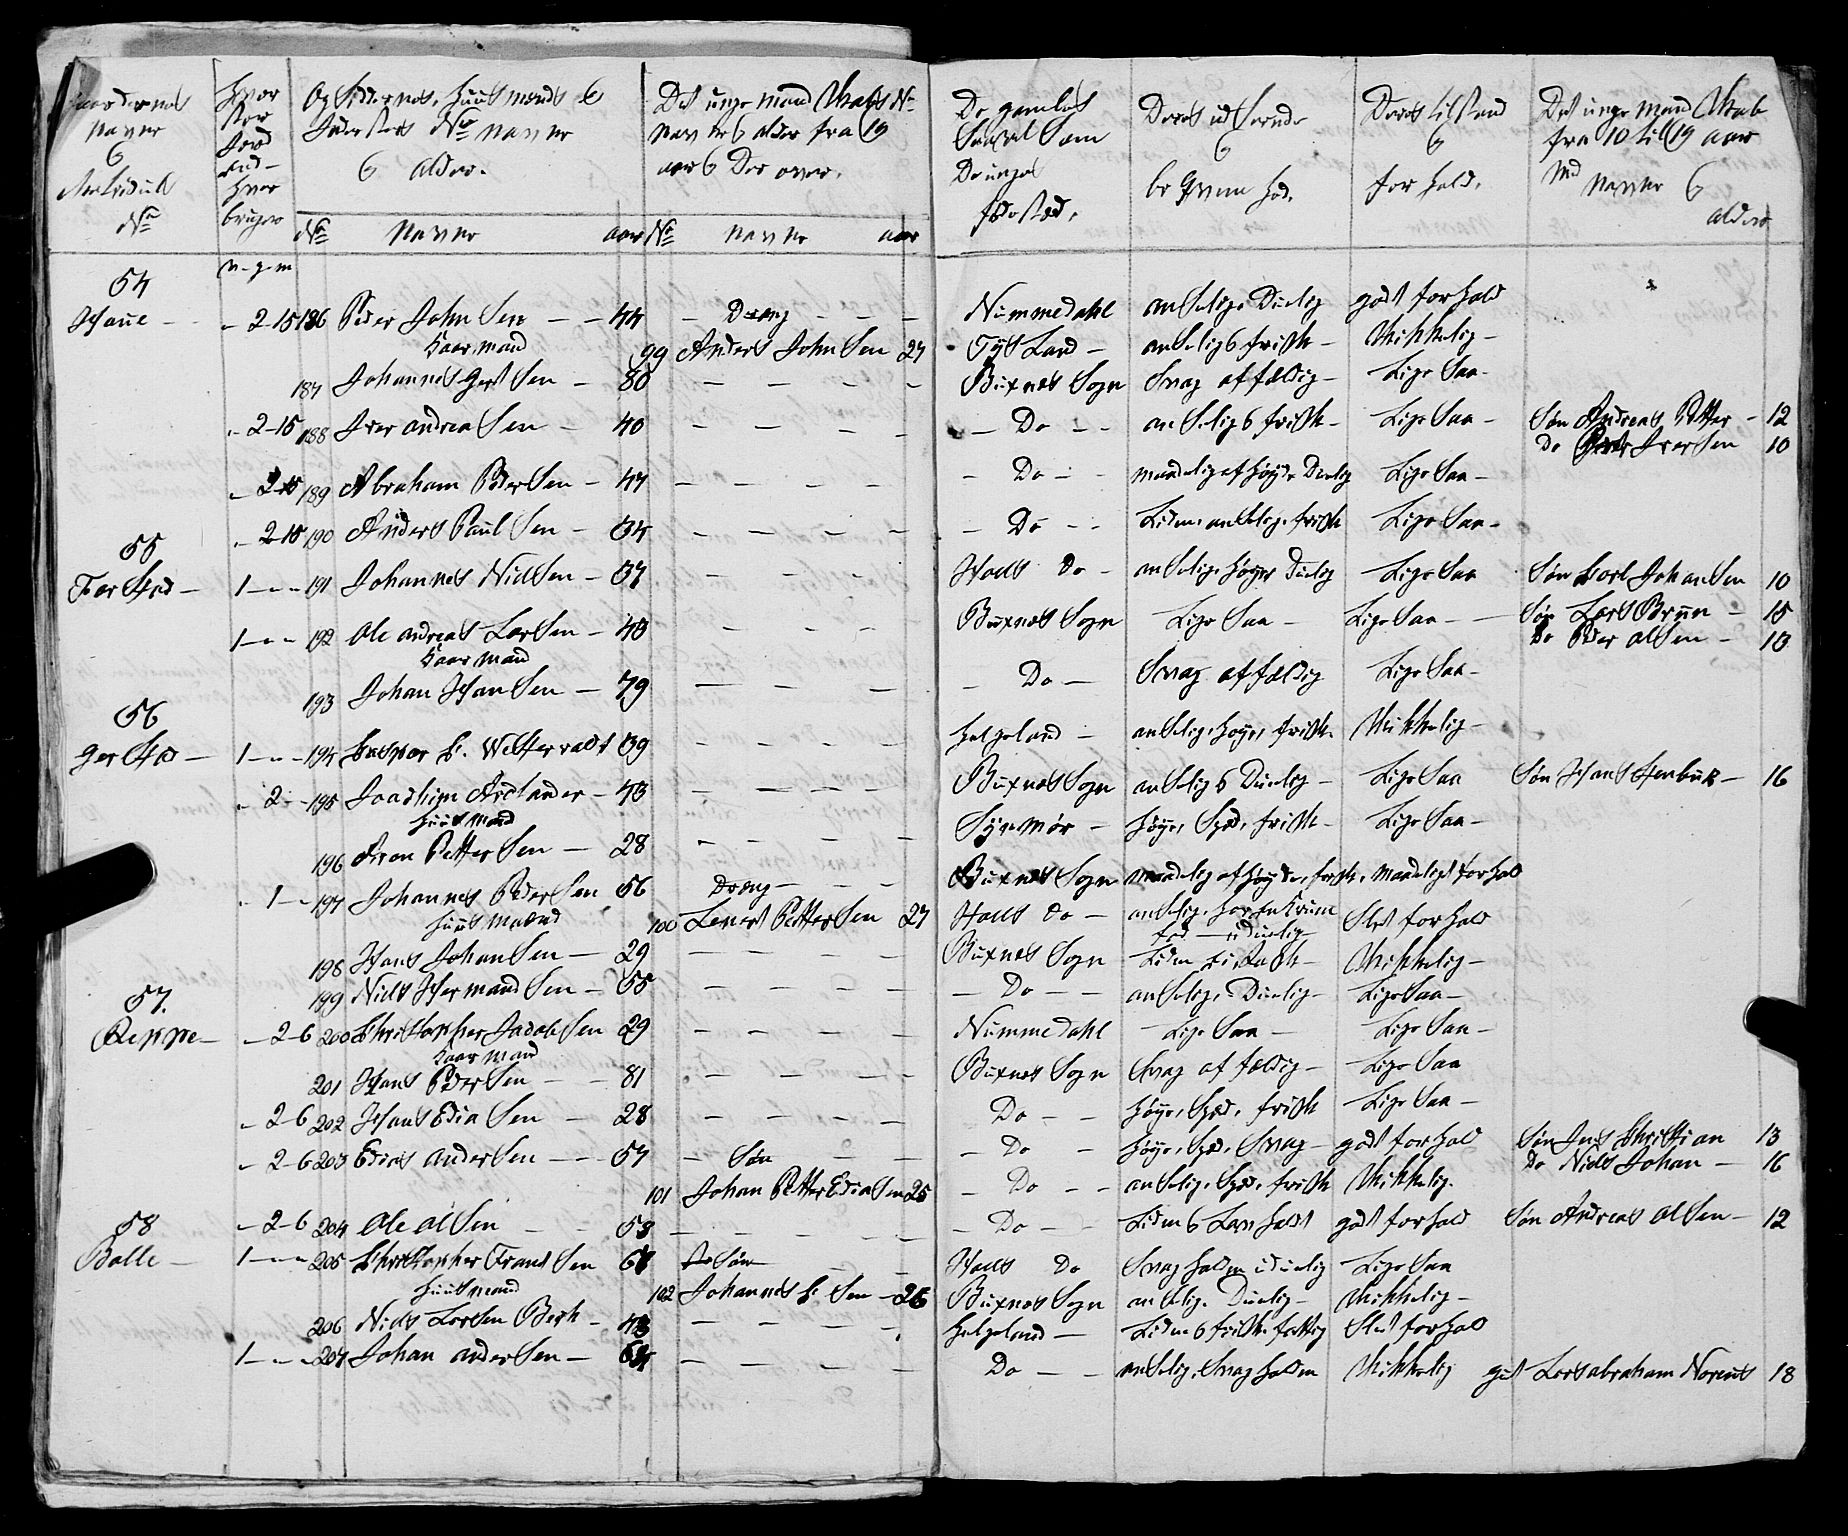 Gaardernes Navne & Matricul No
Hvor stor Jord enhver bruger
Opsiddernes, Huusmænds & Indersters No Navne & Alder.
Det unge Mandskabs No Navne & alder fra 19 aar & Der over.
De gamles Saavel Som De unges fødestæd.
Deres udseende & beqvemhed.
Deres tilstand & forhold.
Det unge Mandskab fra 10 til 19 aar Med Navne & alder
No Navne aar No Navne aar
v - p - m
54
Haue - - 2-15 186 Peder JohnSen - - 44 - Dreng - - - Nummedahl anSelig, Duelig godt forhold
Kaarmand
99 Anders JohnSen 27 TysLand - anSelig & frisk - Skikkelig -
187 Johannes GertSen - 80 - - - - Buxnæs Sogn Svag affældig - Lige Saa -
- 2-15 188 Iver andreaSen - 40 - - - - - Do - - anSelig & frisk - Lige Saa - Søn Andreas Petter - 12
Do Peder IverSen 10
- 2-15 189 Abraham PederSen - 44 - - - - - Do - - maadelig af høyde Duelig Lige Saa -
- 2-15 190 Anders PaulSen - 34 - - - - - Do - - Liden, anSelig, frisk Lige Saa -
55
Farstad - 1 - - - 191 Johannes NielSen - 37 - - - - Hoels Do - anSelig, høy, Duelig Lige Saa Søn Carl JohanSen 10
1 - - - 192 Ole andreas LarSen - 43 - - - Buxnæs Sogn Lige Saa - Lige Saa - - Søn Lars Bruun - 15
Do Peder OlSen - 10
Kaarmand
193 Johan HanSen - 79 - - - - Do - Svag affældig Lige Saa -
56
Gerstad - 1 - - - 194 Caspar C. Wettervaldt 39 - - - - Helgeland - anSelig, høy, frisk - Skikkelig -
- 2 - - 195 Joachim Arctander - 43 - - - - Buxnæs Sogn anSelig & Duelig - Lige Saa Søn Hans Steenbuk - 16
Huusmand
196 Aron PetterSen - 28 - - - - Synmør - Høy, Spæd, frisk - Lige Saa -
- 1 - 197 Johannes PederSen 56 Dreng - - - Buxnæs Sogn maadelig af høyde, frisk, maadeligt forhold
Huusmænd
100 Lenert PetterSen 27 Hoels Do - anSelig, har en Krum fod - uduelig Slet forhold
198 Hans JohanSen - 29 - - - - Buxnæs Sogn Liden & rask - Skikkelig -
199 Niels HermandSen - 55 - - - - - Do - - anSelig, Duelig - Lige Saa -
57.
Reppe - - 2-6 200 Christopher JacobSen 29 - - - - Nummedahl - Lige Saa - Lige Saa -
Kaarmand
201 Hans PederSen - - 81 - - - - Buxnæs Sogn Svag affældig - Lige Saa
- 2-6 202 Hans EdiaSen - 28 - - - - Do - - Høy, Spæd, frisk Lige Saa -
- 2-6 203 Edias anderSen - - 57 - Søn - - Do - Høy, Spæd, Svag - godt forhold Søn Jens Christian 13
Do Niels Johan - 16
101 Johan Petter EdiaSen 25 - Do - - anSelig, Spæd, frisk Skikkelig.
58
- 2-6 204 Ole OlSen - - 53 - - - - - Do - - Liden & Lam haft godt forhold Søn Andreas OlSen - 12
Balle - 1 - - - 205 Christopher FrandSen 67 Søn - - Hoels Do Svag halden uduelig Lige Saa
Huusmand
102 Johannes C. Sen - 26 Buxnæs Sogn anSelig, Duelig - Skikkelig -
206 Niels LarSen Berk - 43 - - - - Helgeland - Liden & frisk, fattig Slet forhold
1 - - - 207 Johan anderSen - 64 - - - - Do - - anSelig, Svag halden Skikkelig Lars abraham Noreus 18